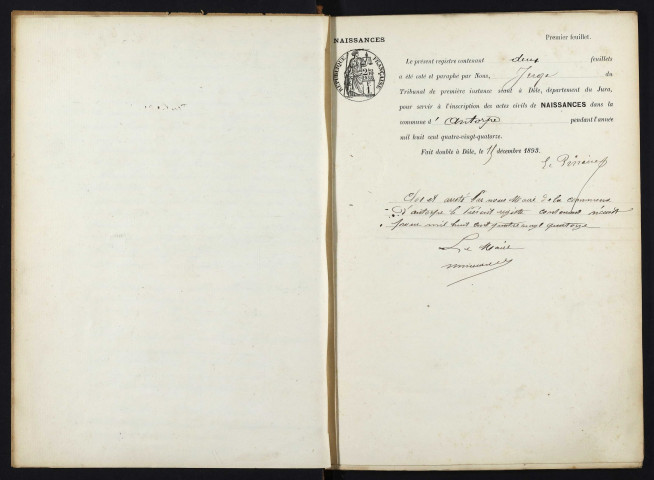 NAISSANCES
Premier feuillet.
RÉPUBLIQUE FRANÇAISE
Le présent registre contenant deux feuillets
a été coté et paraphé par Nous, Juge du
Tribunal de première instance séant à Dôle, département du Jura,
pour servir à l'inscription des actes civils de NAISSANCES dans la
commune d'Antorpe pendant l'année
mil huit cent quatre-vingt-quatorze.
Fait double à Dôle, le 15 décembre 1893.
Clos et arrêté par nous Maire de la commune
d'Antorpe le présent registre contenant
pour mil huit cent quatre vingt quatorze
Le Maire